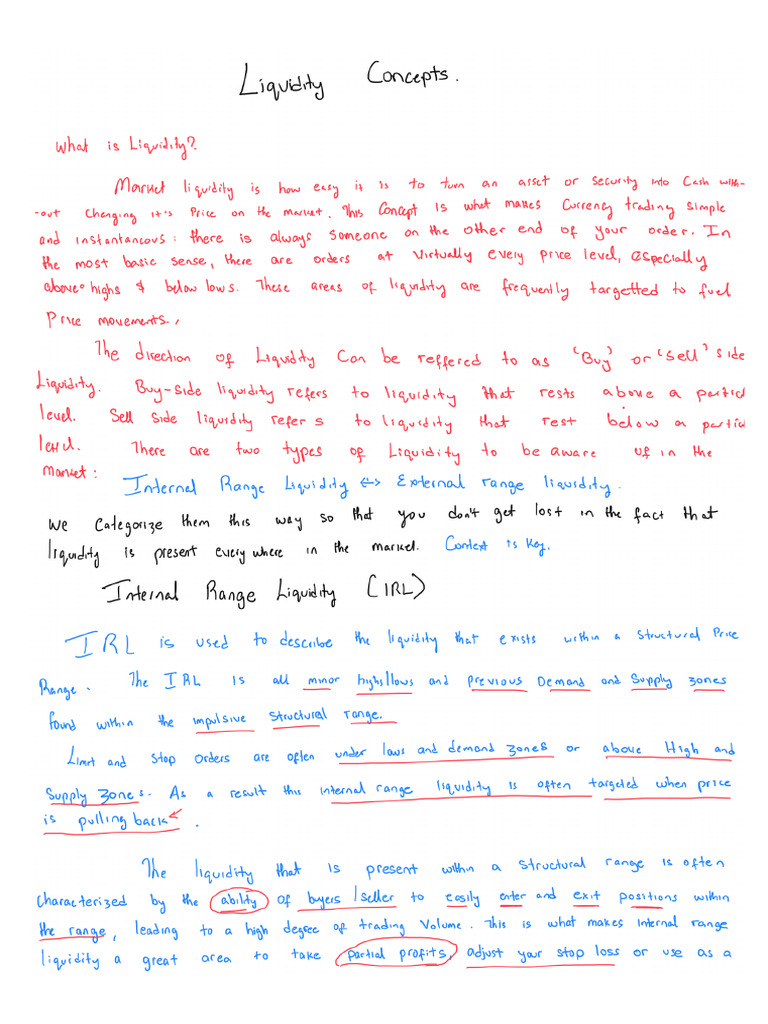 Liquidity Concepts.
What is Liquidity?
Market liquidity is how easy it is to turn an asset or security into Cash with-
-out Changing it's Price on the market. This Concept is what makes Currency trading simple
and instantaneous: there is always someone on the other end of your order. In
the most basic sense, there are orders at virtually every price level, especially
above highs & below lows. These areas of liquidity are frequently targetted to fuel
Price movements.
The direction of Liquidity Can be reffered to as 'Buy' or 'Sell' side
Liquidity. Buy-side liquidity refers to liquidity that rests above a particl
level. Sell side liquidity refers to liquidity that rest below a particl
level. There are two types of Liquidity to be aware of in the
market:
Internal Range Liquidity <-> External range liquidity.
We Categorize them this way so that you don't get lost in the fact that
liquidity is present everywhere in the market. Context is Key.
Internal Range Liquidity (IRL)
IRL is used to describe the liquidity that exists within a Structural Price
Range. The IRL is all minor highs/lows and previous Demand and Supply zones
found within the impulsive structural range.
Limit and stop orders are often under lows and demand zones or above High and
Supply zones. As a result this internal range liquidity is often targeted when price
is pulling back.
The liquidity that is present within a structural range is often
characterized by the ability of buyers/seller to easily enter and exit positions within
the range, leading to a high degree of trading Volume. This is what makes internal range
liquidity a great area to take partial profits, adjust your stop loss or use as a